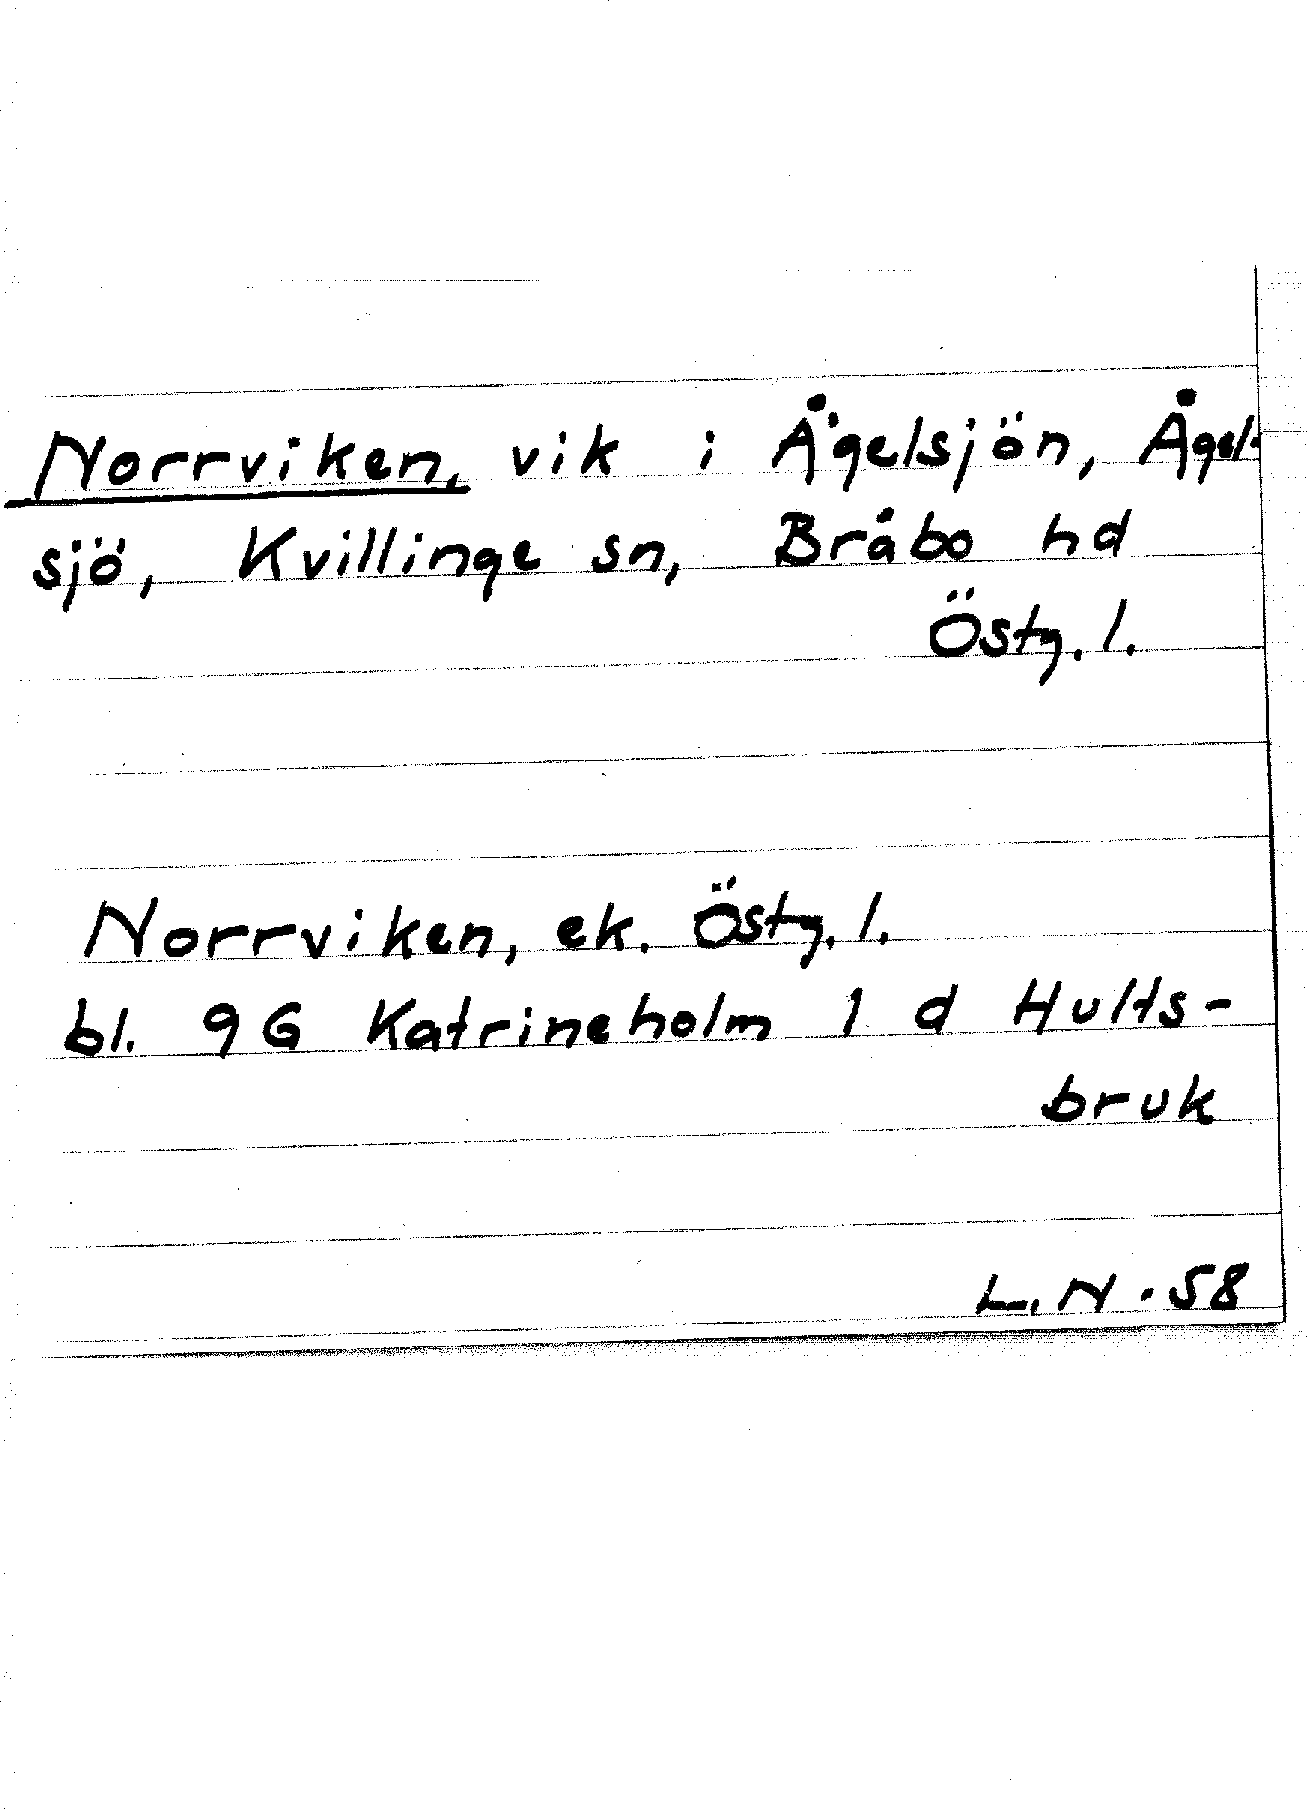 Norrviken, vik i Ågelsjön, Ågel-
sjö, Kvillinge sn, Bråbo hd
Östg. l.
Norrviken, ek. Östg. l.
bl. 9G Katrineholm 1 d Hults-
bruk
L. N. 58